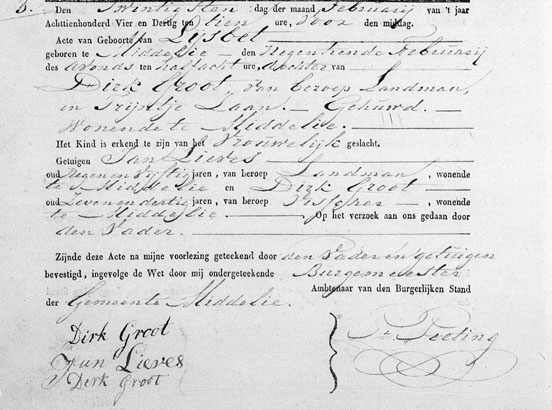 8.
Den Twintigsten dag der maand Februarij van 't jaar
Achttienhonderd Vier en Dertig ten tien ure, voor den middag.
Acte van Geboorte van Lijsbet
geboren te Middelie den Negentiende Februarij
des avonds ten half acht ure, dochter van
Dirk Groot, van beroep Landman,
en Trijntje Laan. Gehuwd.
Wonende te Middelie.
Het Kind is erkend te zijn van het Vrouwelijk geslacht.
Getuigen Jan Lieres
oud Negen en Vijftig jaren, van beroep Landman, wonende
te Middelie en Dirk Groot
oud Zeven en dertig jaren, van beroep Visscher wonende
te Middelie Op het verzoek aan ons gedaan door
den Vader.
Zijnde deze Acte na mijne voorlezing geteekend door den Vader en getuigen
bevestigd, ingevolge de Wet door mij ondergeteekende Burgemeester
Ambtenaar van den Burgerlijken Stand
der Gemeente Middelie.
Dirk Groot
Jan Lieres
Derk Groot
Teeling